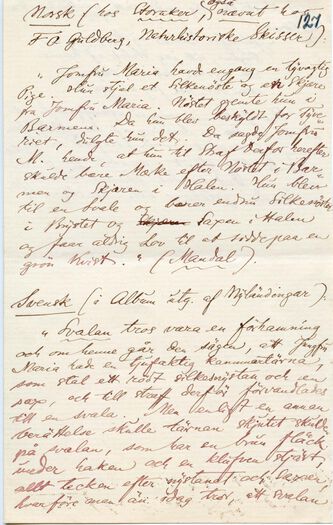 også
Norsk (hos Storaker, nævnt hos
121
F. O. Guldberg, Naturhistoriske Skisser).
"Jomfru Maria havde engang en tyvagtig
Pige. Hun stjal et Silkenöste og en Skjære
fra Jomfru Maria. Nöstet gjemte hun i
Barmen. Da hun blev beskyldt for Tyve-
riet, dulgte hun det. Da sagde Jomfru
M. hende, at hun til Straf derfor herefter
skulde bære Mærke efter Nöstet i Bar-
men og Skjæren i Halen. Hun blev
til en Svale og bærer endnu Silkenöstet
i Brystet og Saxen i Halen
og faar aldrig Lov til at sidde paa en
grön Kvist." (Mandal)
Svensk (i Album utg. af Nyländingar).
"Svalan tros vara en förhamning
och om henne går den sägen, att Jungfru
Maria hade en tjufaktig kammartärna,
som stal ett rödt silkesnystan och en
sax, och till straff derför förvandlades
till en svala. Men enligt en annan
berättelse skulle tärnan skjutit skuld
på svalan, som har en brun fläck
under hakan och en klufven stjert,
allt tecken efter nystanet och saxen:
hvarföre man än idag tror, att svalan